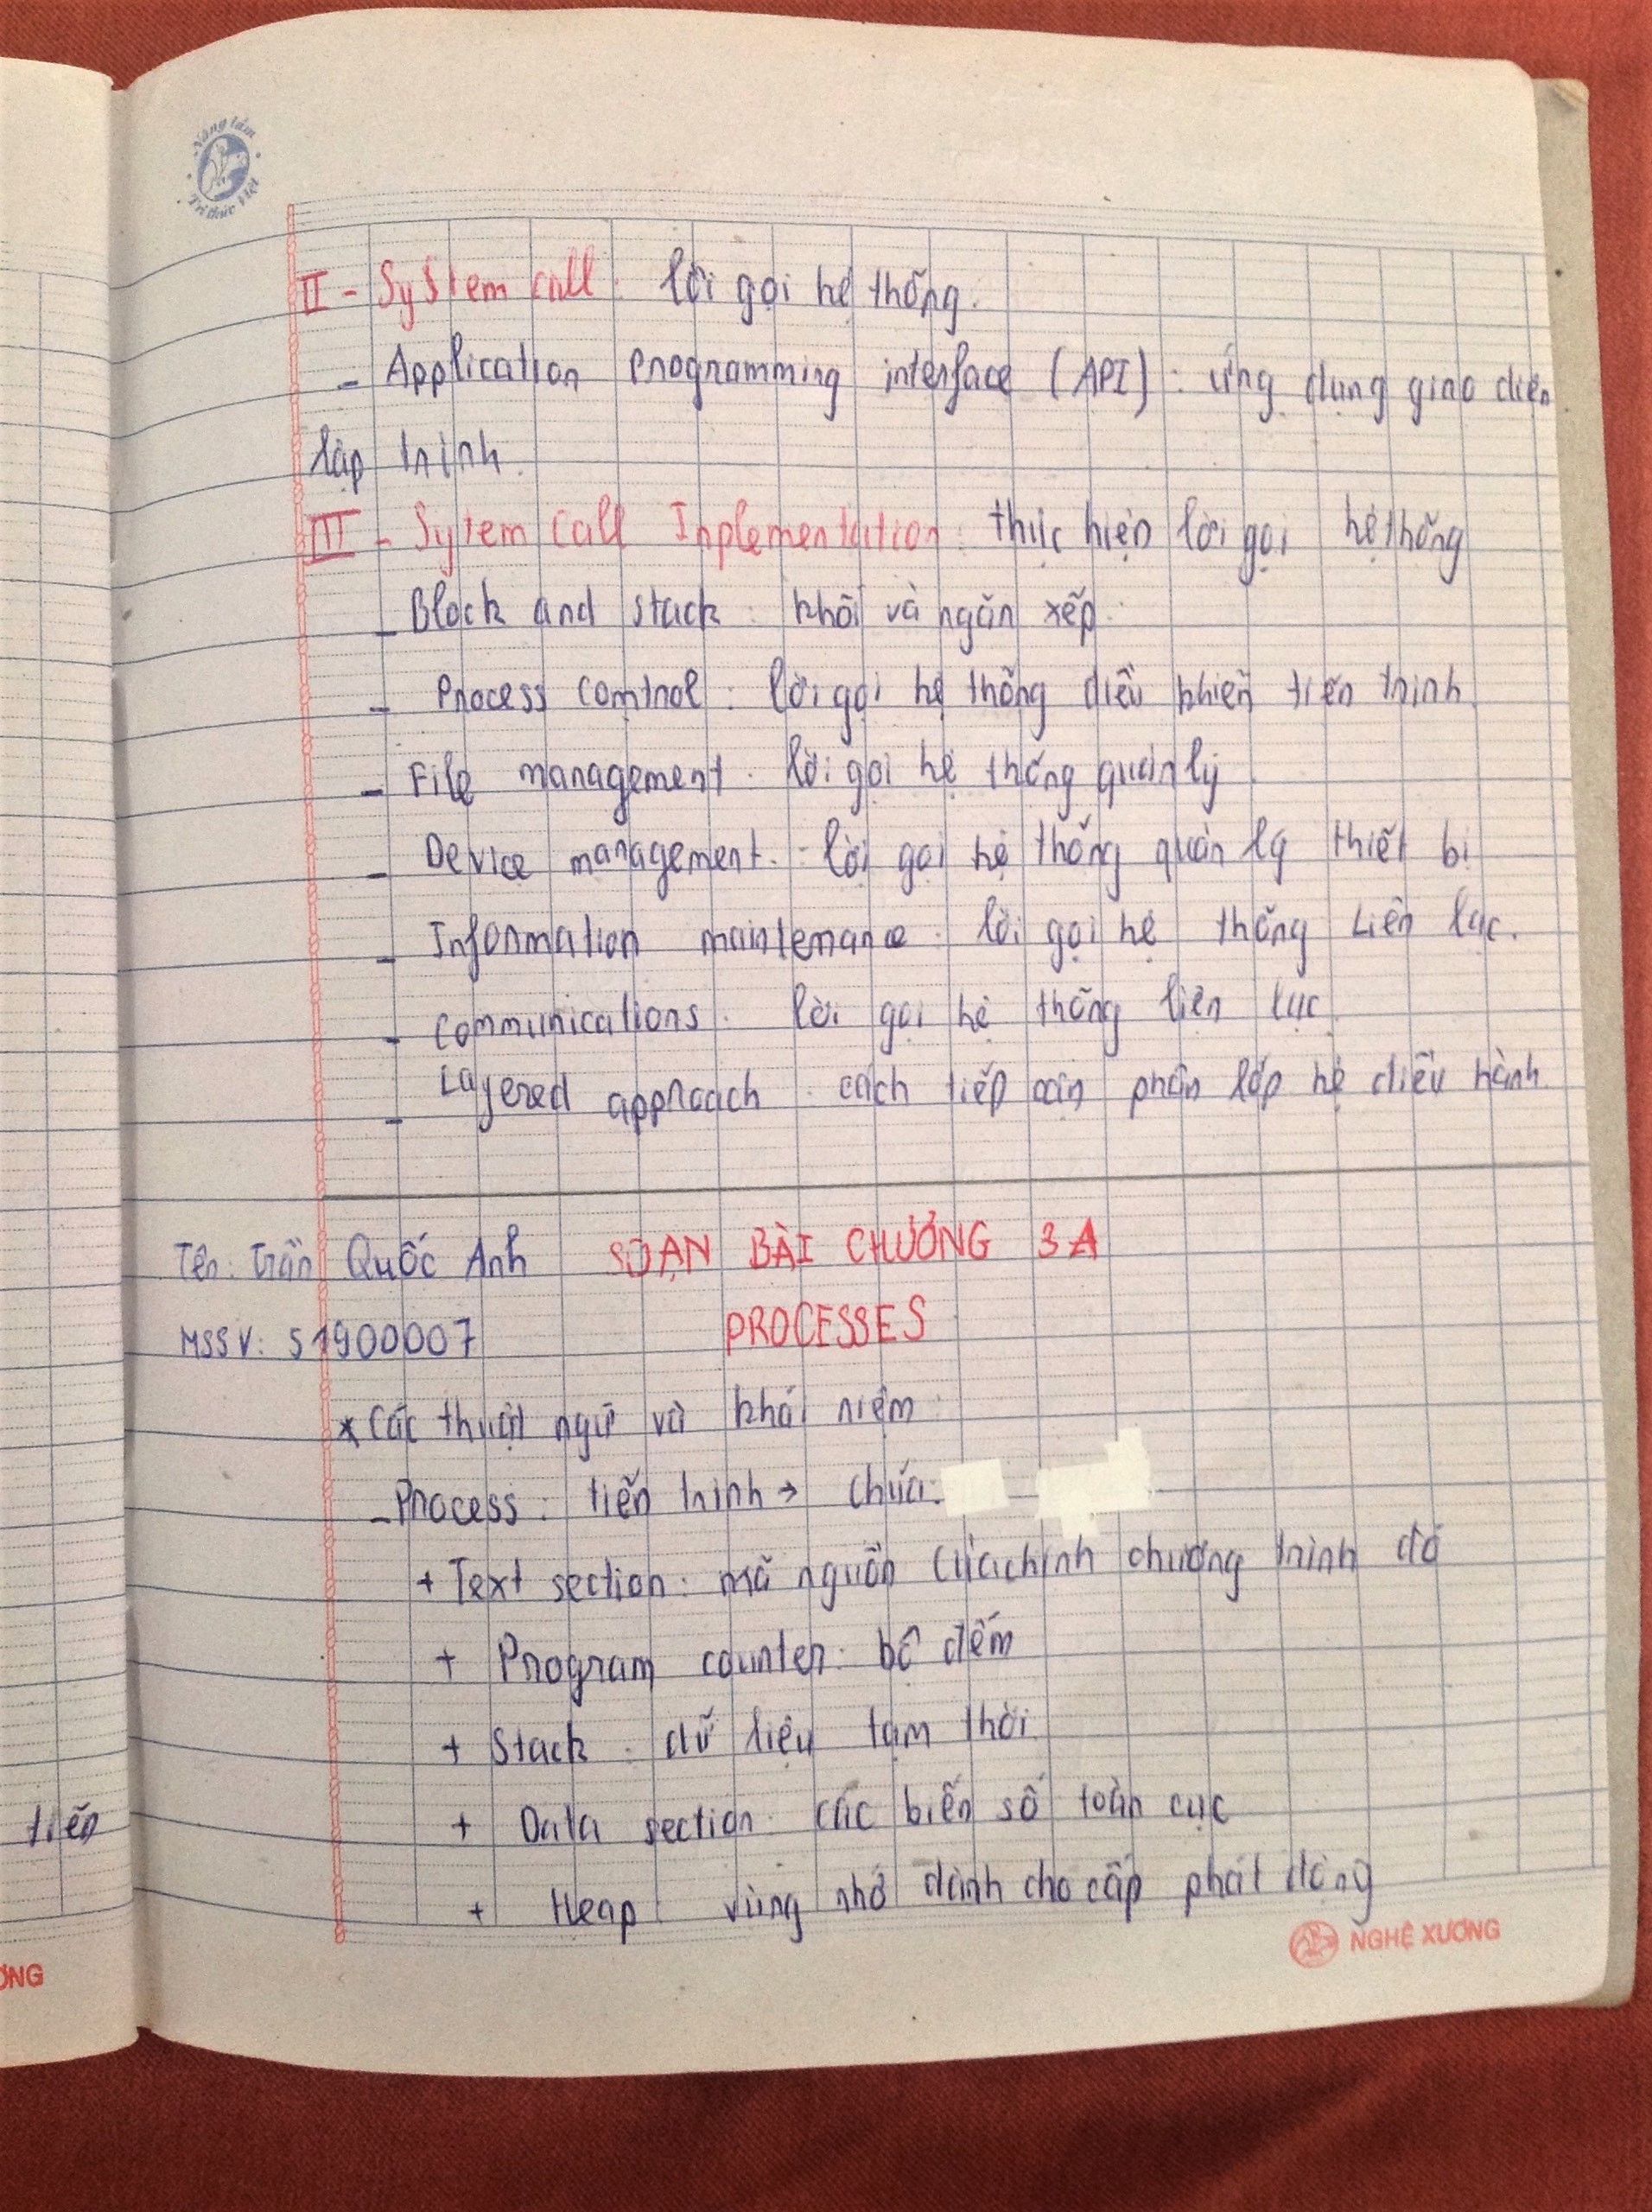 Nâng tầm
Tri thức Việt
II - System call: lời gọi hệ thống.
- Application programming interface (API): ứng dụng giao diện
lập trình.
III - Sytem Call Inplementation: thực hiện lời gọi hệ thống
- Block and stack: khối và ngăn xếp.
- Process control: lời gọi hệ thống điều khiển tiến trình
- File management: lời gọi hệ thống quản lý
- Device management: lời gọi hệ thống quản lý thiết bị
- Information maintemance: lời gọi hệ thống Liên lạc.
- communications: lời gọi hệ thống liên lạc
- Layered approach: cách tiếp cận phân lớp hệ điều hành
Tên: Trần Quốc Anh SOẠN BÀI CHƯƠNG 3A
MSSV: 51900007 PROCESSES
* Các thuật ngữ và khái niệm:
- Process: tiến trình → chứa:
+ Text section: mã nguồn của chính chương trình đó
+ Program counter: bộ đếm
+ Stack: dữ liệu tạm thời
+ Data section: các biến số toàn cục
+ Heap: vùng nhớ dành cho cấp phát động
tiến
NGHỆ XƯƠNG
ƠNG